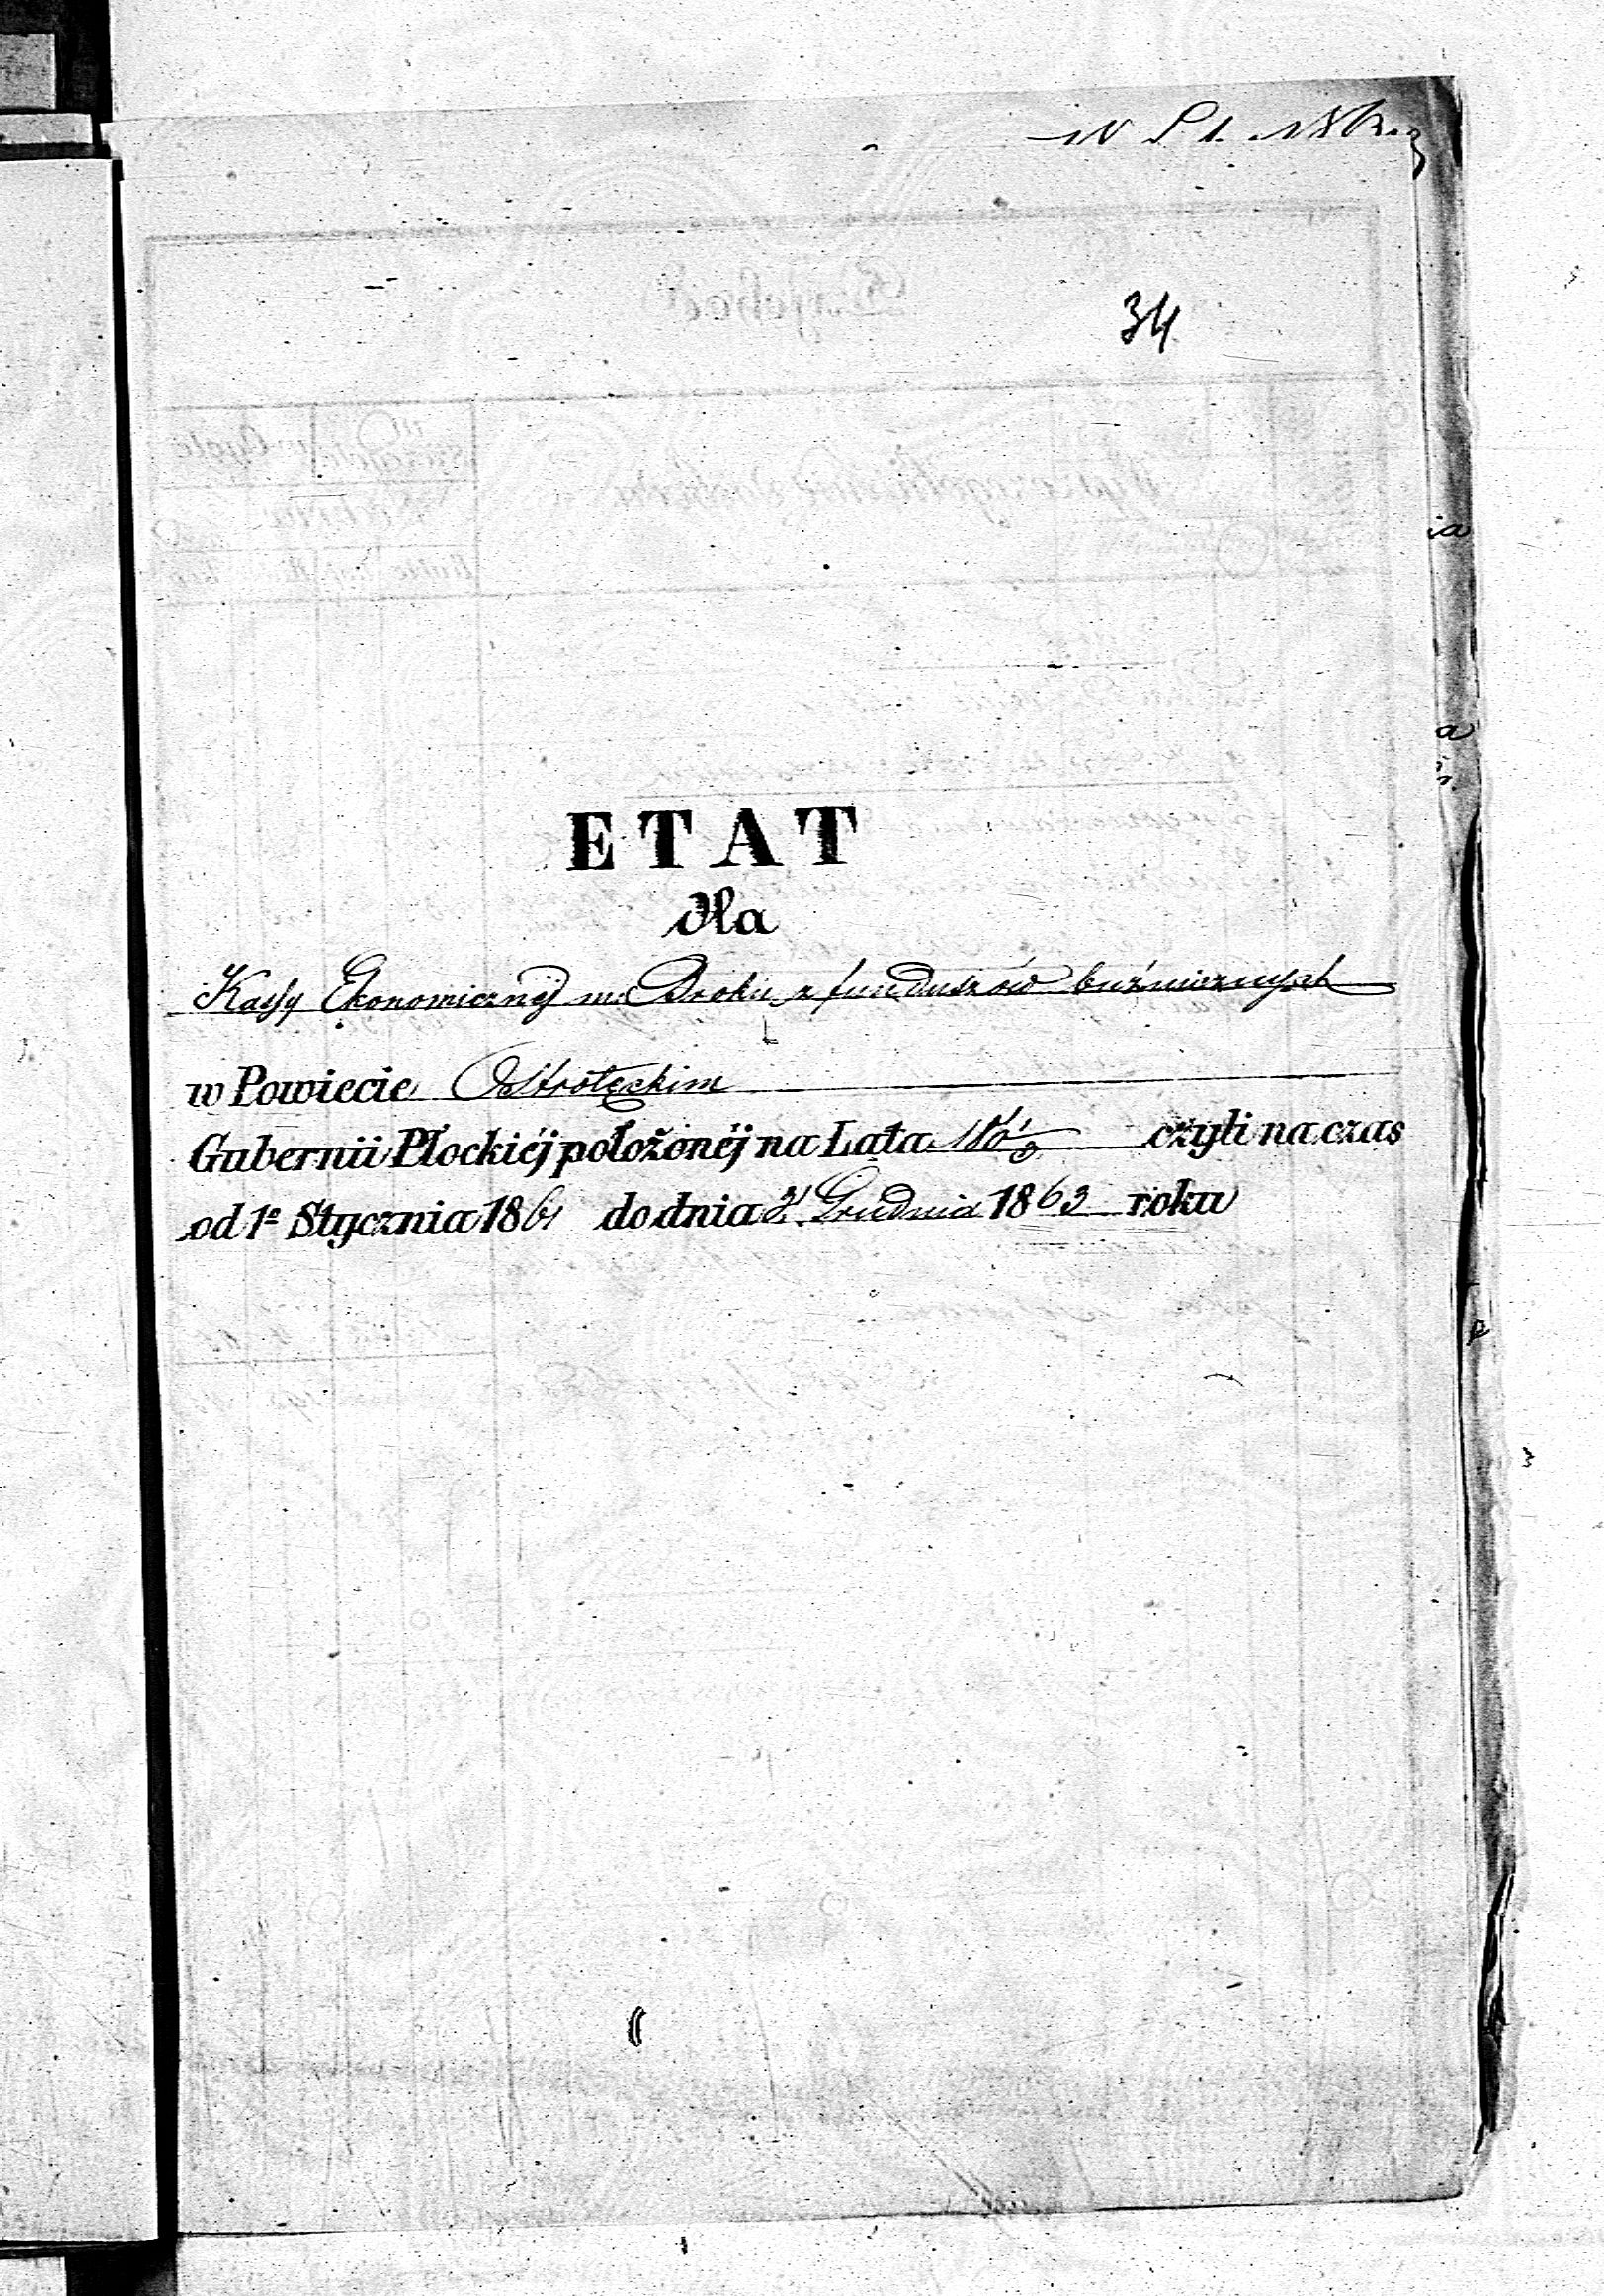 34
ETAT
dla
Kassy Ekonomicznéj m. Broku z funduszów bużnicznych
w Powiecie Ostrołęckim
Gubernii Płockiéj położonéj na Lata 186 1/3 czyli na czas
od 1º Stycznia 1861 do dnia 31 Grudnia 1863 roku